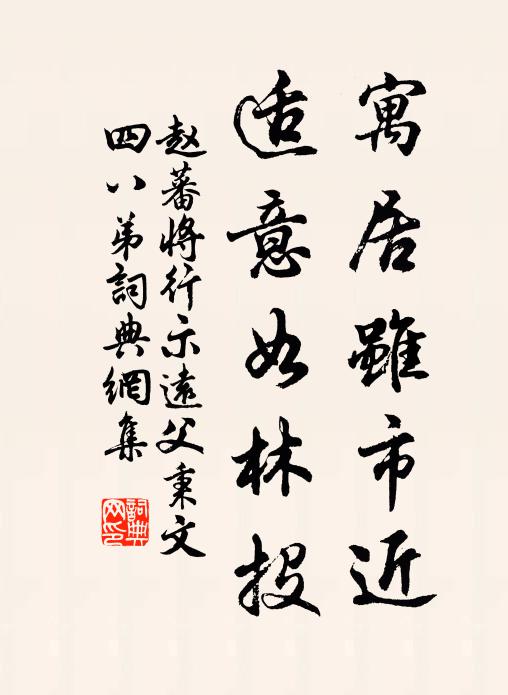 寓居雖市近
适意如林投
赵蕃将行示遠父秉文
四八弟詞典網集
詞典
网印